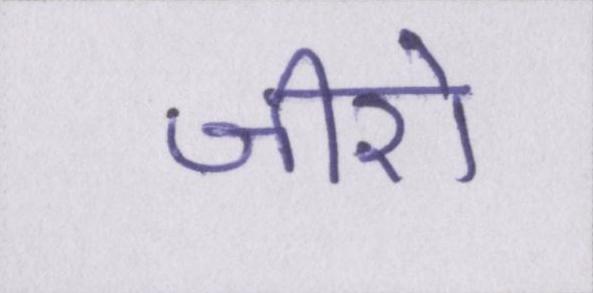 जीरो